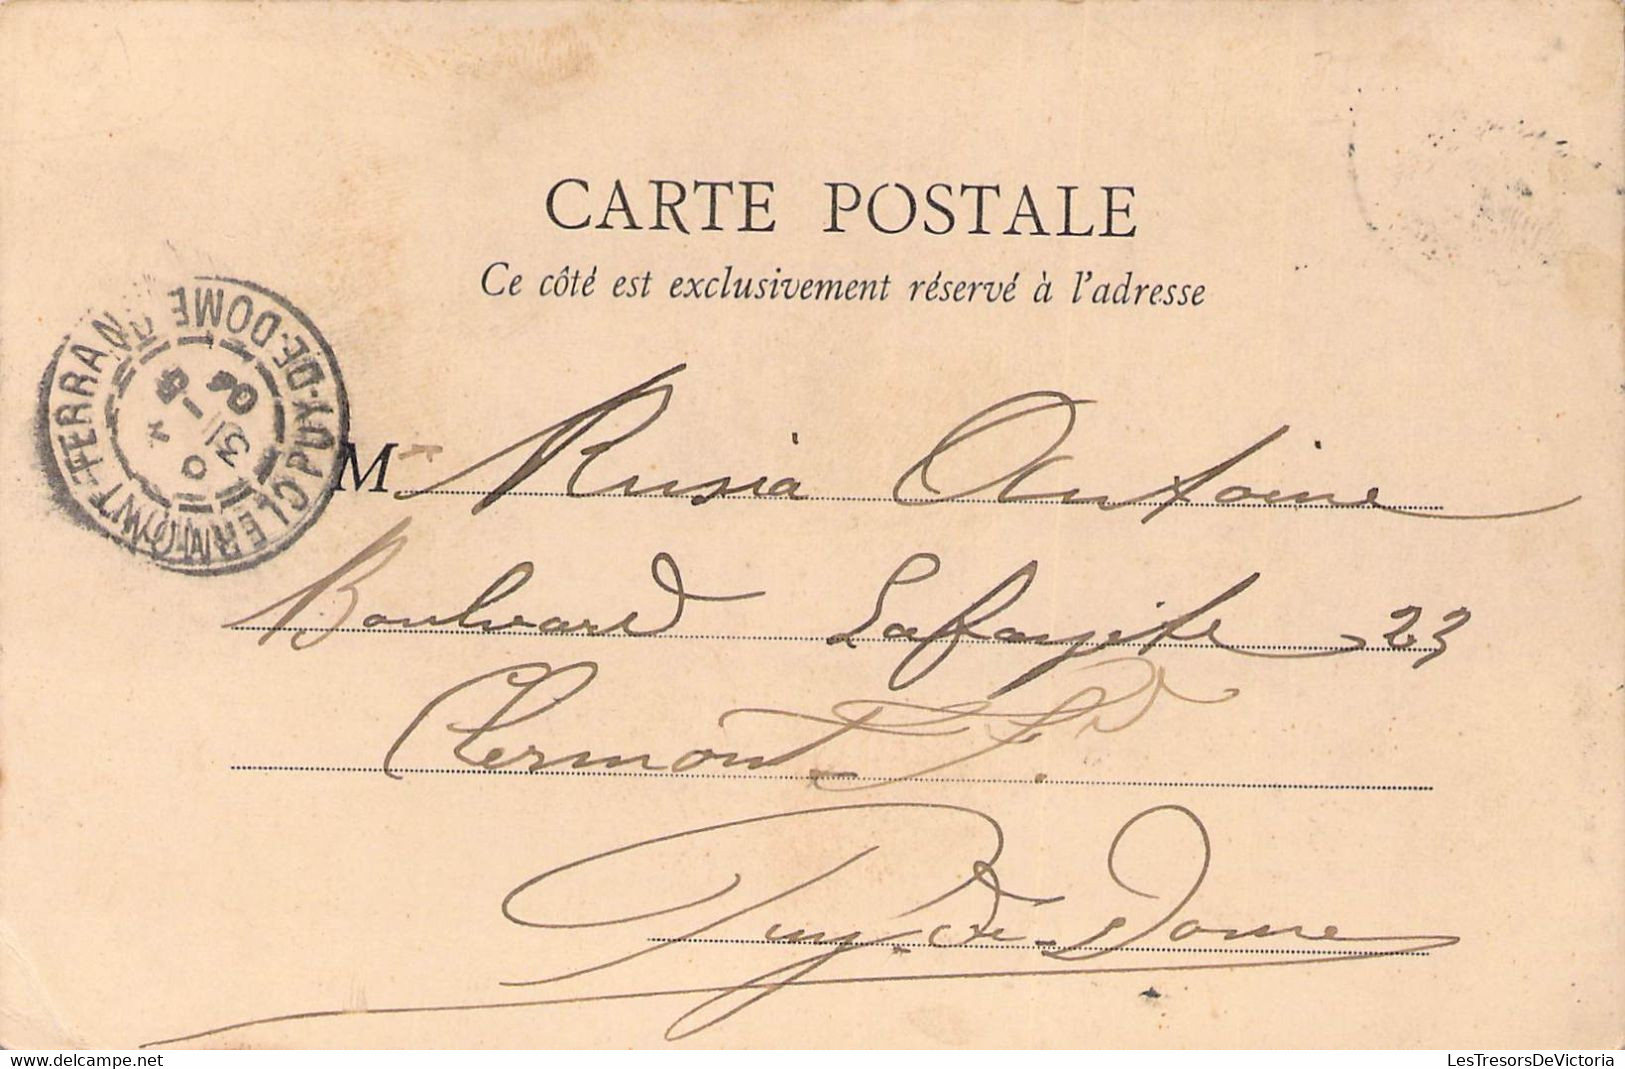 CARTE POSTALE
Ce côté est exclusivement réservé à l'adresse
CLERMONT-FERRAND PUY-DE-DOME
31 -5 04
M Rusia Antoine
Boulevard Lafayette 23
Clermont-Fd
Puy-de-Dome
LesTresorsDeVictoria